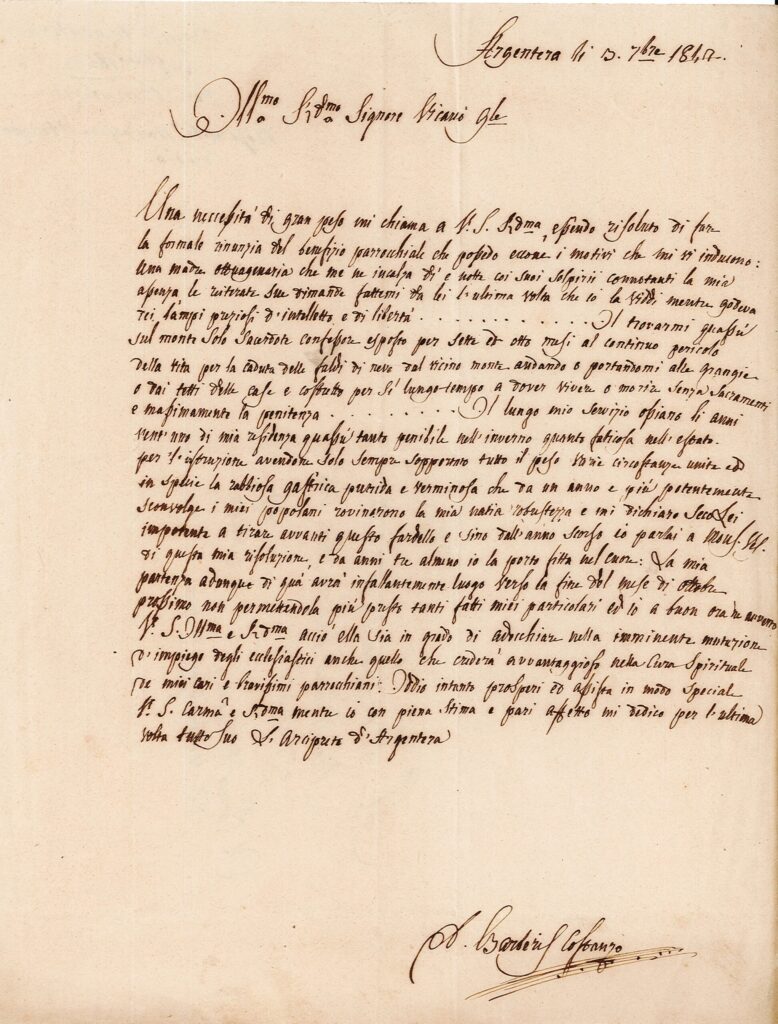 Argentera li 3. 7bre 1842.
Ill.mo R.dmo Signore Vicario Gle
Una necessità di gran peso mi chiama a V. S. Rdma, essendo risoluto di fare
la formale rinunzia del benefizio parrocchiale che possedo eccone i motivi che mi vi inducono:
una madre ottuagenaria che me ne inculza dì e notte coi suoi sospirii connotanti la mia
assenza le reiterate sue dimande fattemi da lei l'ultima volta che io la viddi mentre godeva
dei lampi preziosi d'intelletto e di libertà . . . . . . . . . . . . . . Il trovarmi quassù
sul monte solo sacerdote confessore esposto per sette ed otto mesi al continuo pericolo
della vita per la caduta delle faldi di neve dal vicino monte andando o portandomi alle grangie
o dai tetti delle case e costretto per sì lungo tempo a dover vivere o morir senza Sacramenti
e massimamente la penitenza . . . . . . . . . . Il lungo mio servizio ossiano li anni
vent'uno di mia residenza quassù tanto penibile nell'inverno quanto faticosa nell'estate
per l'istruzione avendone solo sempre sopportato tutto il peso varie circostanze unite ed
in specie la rabbiosa gastrica putrida e verminosa che da un anno e più potentemente
sconvolge i miei popolani rovinarono la mia natia robustezza e mi dichiaro seco Lei
impotente a tirar avvanti questo fardello e sino dall'anno scorso io parlai a Mons.
di questa mia risoluzione, e da anni tre almeno io la porto fitta nel cuore: La mia
partenza adunque di quà avrà infallantemente luogo verso la fine del mese di ottobre
prossimo non permettendola più presto tanti fatti miei particolari ed io a buon ora ne avverto
V. S. Illma e Rdma acciò ella sia in grado di adocchiare nella imminente mutazione
d'impiego degli ecclesiastici anche quello che crederà avvantaggioso nella Cura Spirituale
de miei cari e bravissimi parrocchiani: Iddio intanto prosperi ed assista in modo speciale
V. S. Carma e Rdma mentre io con piena stima e pari affetto mi dedico per l'ultima
volta tutto suo L'Arciprete d'Argentera
D. Barberis Costanzo